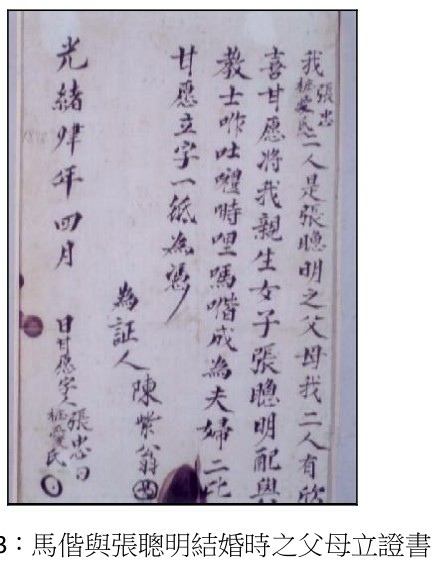 我張忠愛氏二人是張聰明之父母我二人有欣
喜甘愿將我親生女子張聰明配與
教士咋吐哩嗎喈成為夫婦二比
甘愿立字一紙為憑
為証人陳紫翁
光緒肆年四月 日甘愿字人張忠愛氏
3：馬偕與張聰明結婚時之父母立證書